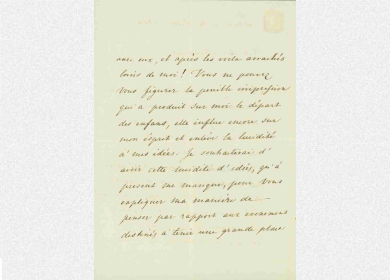 avec eux, et après les voilà arrachés
loin de moi! Vous ne pouvez
Vous figurer la pénible impression
qu'a produit sur moi le départ
des enfans, elle influe encore sur
mon esprit et enlève la lucidité
à mes idées. Je souhaiterai d'
avoir cette lucidité d'idées, qu'à
présent me manque, pour Vous
expliquer ma manière de
penser par rapport aux événemens
destinés à tenir une grande place